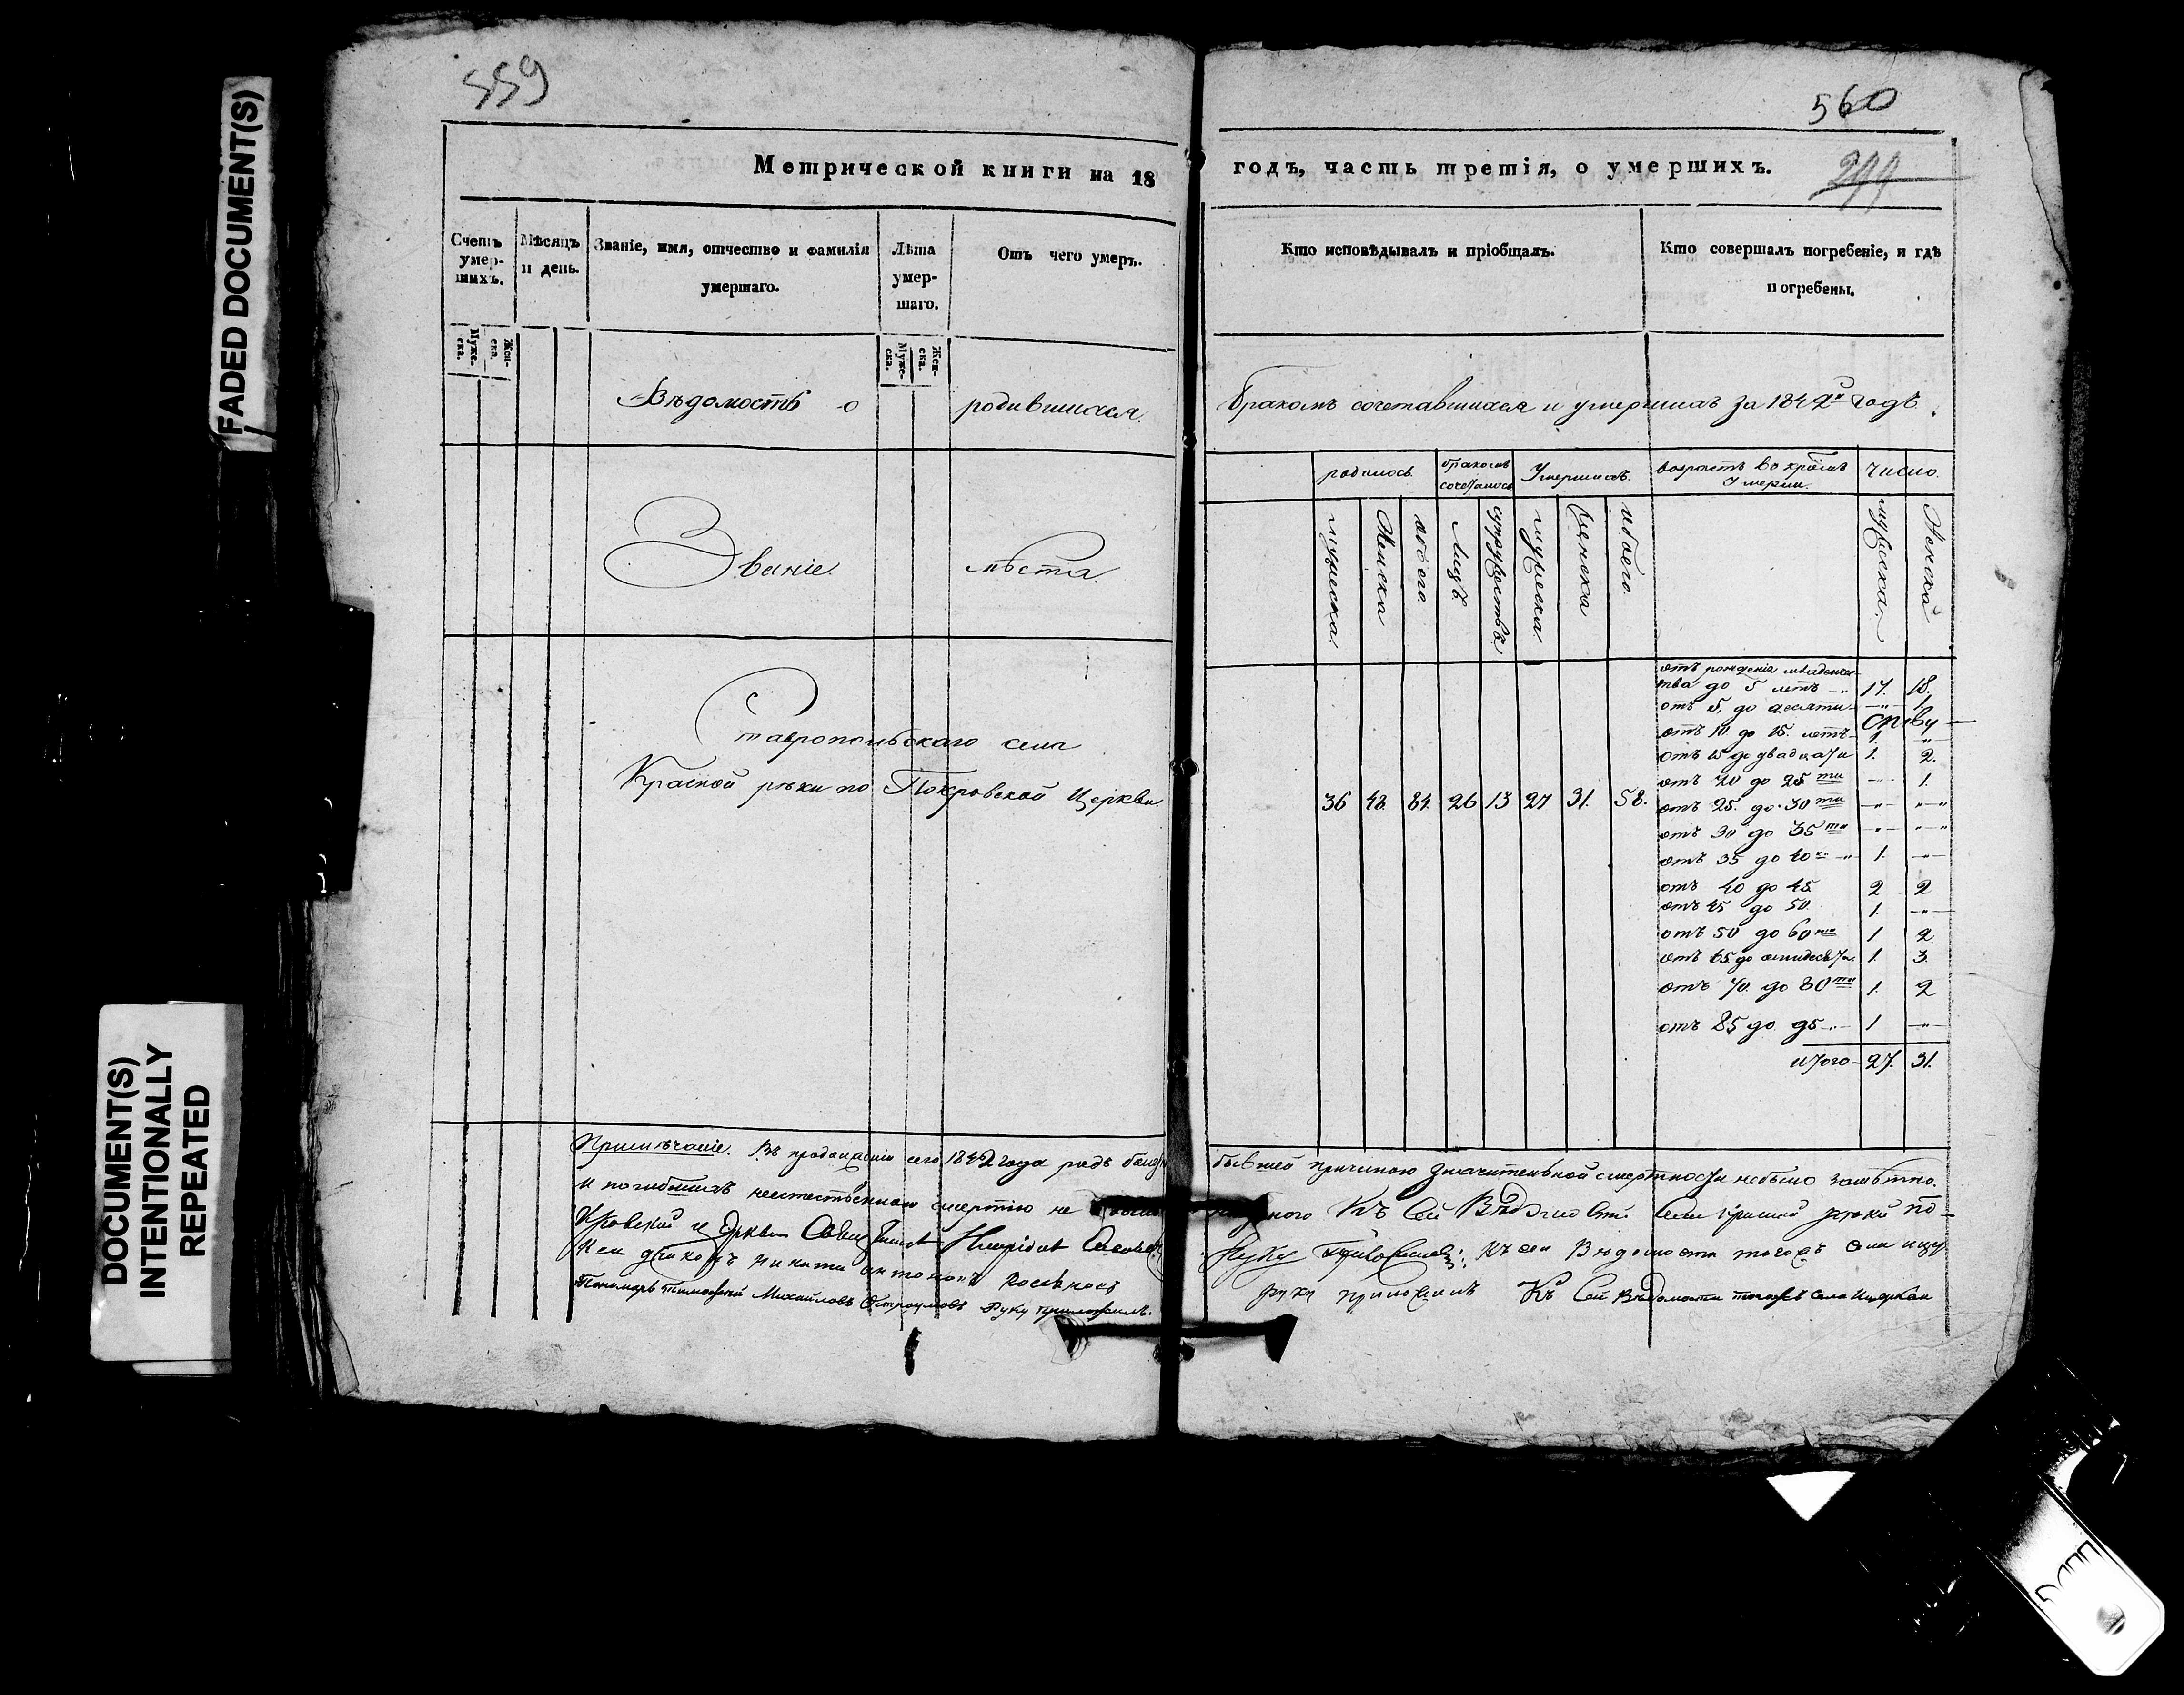 FADED DOCUMENT(S)
DOCUMENT(S)
INTENTIONALLY
REPEATED
559
Метрической книги на 18
Счетъ умер-шихъ.
Мѣсяцъ и день.
Званіе, имя, отчество и фамилія умершаго.
Лѣта умер-шаго.
Отъ чего умеръ.
Муже-ска.
Жен-ска.
Муже-ска.
Жен-ска.
Вѣдомость о родившихся
Званіе мѣста
Ставропольскаго села
Красной рѣки по Покровской Церкви
Примѣчаніе. Въ продолженіи сего 1842 года родъ болѣз
и погибшихъ неестественною смертію не было
кровской церкви
дьяконъ Никита Антоновъ
Пономарь Тимофей Михайловъ Остроумовъ руку приложилъ.
560
годъ, часть третія, о умершихъ.
299
Кто исповѣдывалъ и пріобщалъ.
Кто совершалъ погребеніе, и гдѣ погребены.
бракомъ сочетавшихся и умершихъ за 1842й годъ.
родилось
бракомъ сочеталось
Умершихъ
возрастъ во кремъ умерли
число
мужеска
Женска
обоего
Лицъ
супружествъ
мужеска
женска
обоего
мужеска
Женска
36 48 84 26 13 27 31. 58.
отъ рожденія младенче-
ства до 5 летъ 17. 18.
отъ 5. до десяти 1
отъ 10 до 15. летъ 1
отъ 15 до двадцати 1. 2.
отъ 20 до 25 ти 1.
отъ 25. до 30 ти
отъ 30 до 35 ти
отъ 35 до 40 1.
отъ 40 до 45 2 2
отъ 45 до 50. 1.
отъ 50 до 60 1 2.
отъ 65 до семидесяти 1. 3.
отъ 70. до 80 ти 1. 2
отъ 85 до 95 1
итого 27. 31.
бывшей причиною значительной смертности небыло замѣтно.
Къ Сей Вѣдомости Села Красной рѣки По-
руку Къ сей Вѣдомости тогожъ села
руку приложилъ Къ Сей Вѣдомости тогожъ села Церкви